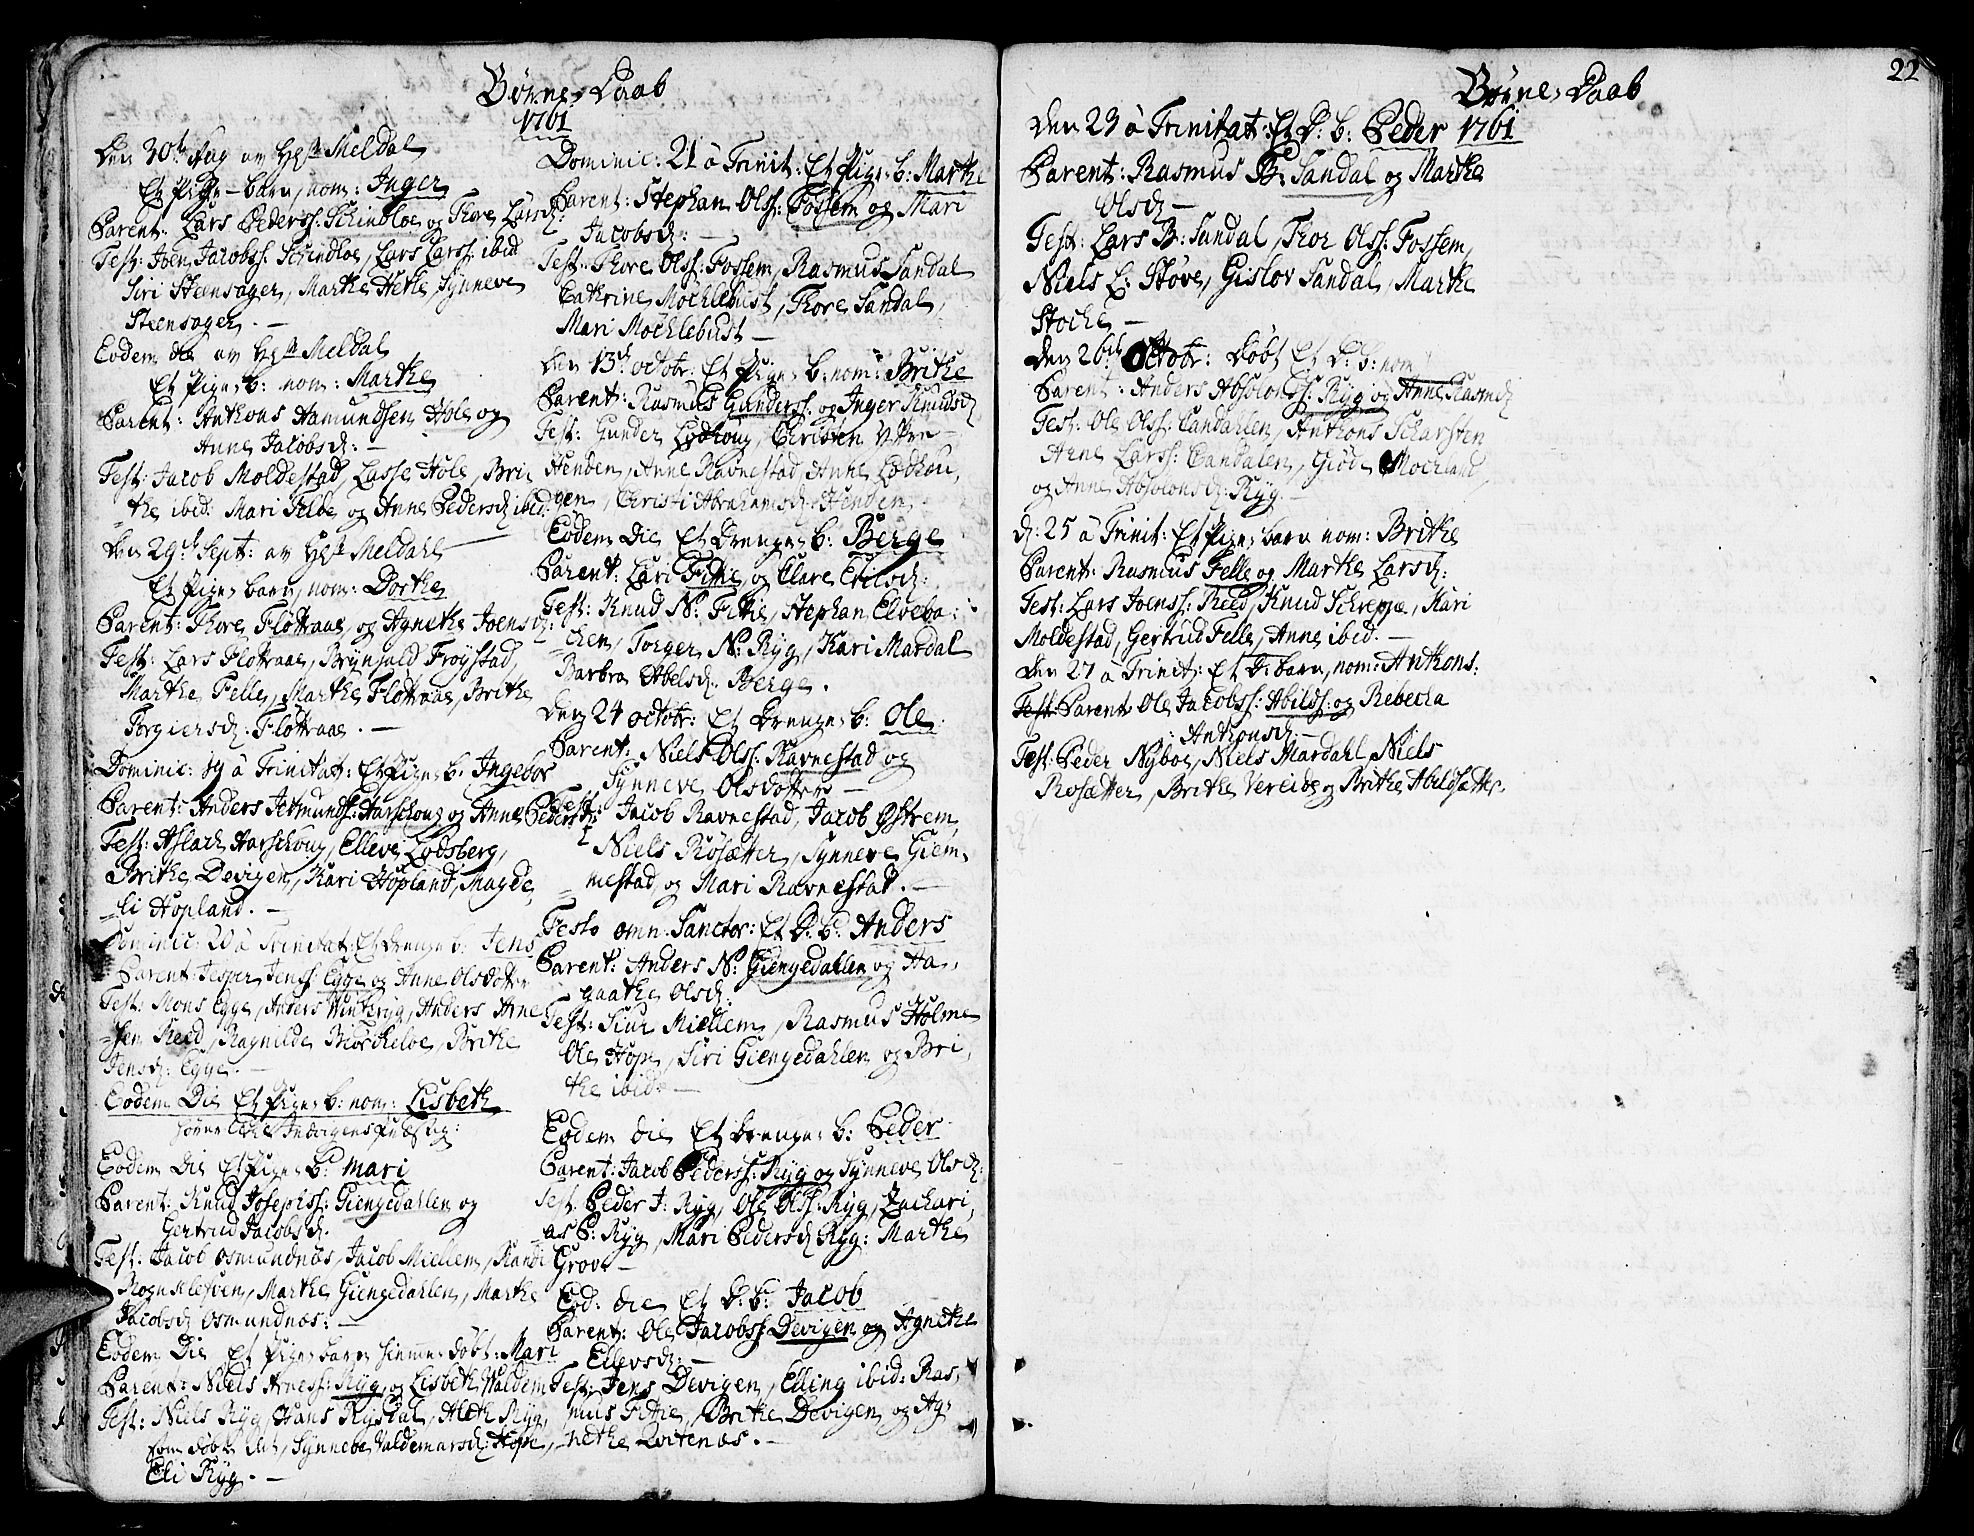 Børne-Daab
1761
den 30te Aug av Hr Meldal
Et Pige-barn, nom: Inger
Parent: Lars Pederss: Schindloe og Thore Larsd:
Test: Joen Jacobss: Schindloe, Lars Larss: ibid
Siri Steensager, Marthe Hetle, Synneve
Steensager. —
Eodem die av Hr Meldal
Et Pige-b: nom: Marthe
Parent: Anthons Aamundsen Hole og
Anne Jacobsd: —
Test: Jacob Moldestad, Lasse Hole, Bri
the ibid: Mari Felde og Anne Pedersd ibid:
den 29de Sept: av Hr Meldahl
Et Pige-barn, nom: Dorthe
Parent: Thore Fløttraae, og Agnethe Joensd:
Test: Lars Fløttraae, Brynjuld Frøystad,
Marthe Felle, Marthe Fløttraae, Brithe
Torgiersd: Fløttraae. —
Dominic: 19 à Trinitat: Et Pige-b: Ingebor
Parent: Anders Aamundss: Aarschoug og Anne Pedersd:
Test: Aslach Aarschoug, Elleve Lodsberg,
Brithe Devigen, Kari Hopland, Magde
li Hopland. —
Dominic: 20 à Trinitat: Et Drenge b: Jens
Parent: Jesper Jenss: Egge og Anne Olsdotter
Test: Mons Egge, Anders Winteryg, Anders Arne
sen Reed, Ragnilde Biørcheloe, Brithe
Jensd: Egge. —
Eodem Die Et Pige-b: nom: Lisbeth
Eodem Die Et Pige-b: Mari
Parent: Knud Josephss: Giengedahlen og
Gertrud Jacobsd.
Test: Jacob Osmundnæs, Jacob Miellem, Randi
Rognkleven, Marthe Giengedahlen, Marthe
Jacobsd Osmundnæs: —
Eodem Die Et Pige-barn hiemme-døbt: Mari
Parent: Niels Arness: Ryg, og Lisbeth Waldem
Test: Niels Ryg, Hans Rysdal, Aleth Ryg,
som døbte det, Synneve Valdemarsd: Hope,
Eli Ryg. —
Dominic: 21 à Trinit: Et Pige-b: Marthe
Parent: Stephan Olss: Fossem og Mari
Jacobsd: —
Test: Thore Olss: Fossem, Rasmus Sandal
Cathrine Møchlebust, Thore Sandal,
Mari Møchlebust —
den 13de octobr: Et Pige-b: nom: Brithe
Parent: Rasmus Gunderss: og Inger Knudsd
Test: Gunder Lodhoug, Christen Ytre
Henden, Anne Ravnestad, Anne Lodhou,
gen, Christi Abrahamsd: Henden,
Eodem Die Et Drenge-b: Berge
Parent: Lars Fitie, og Clare Erilsd:
Test: Knud N: Fitie, Stephan Elveba:
chen, Torger N: Ryg, Kari Mardal
Barbra Abelsd: Berge.
den 24 octobr: Et Drenge-b: Ole
Parent: Niels Olss: Ravnestad og
Synneve Olsdotter —
Test: Jacob Ravnestad, Jacob Østrem,
Niels Rosætter, Synneve Giem-
mestad, og Mari Ravnestad. —
Festo omn. Sanctor: Et D: b: Anders
Parent: Anders N: Giengedahlen og Aa-
gaathe Olsd:
Test: Siur Miellem, Rasmus Holme
Ole Hope, Siri Giengedahlen og Bri,
the ibid: —
Eodem die Et Drenge-b: Peder
Parent: Jacob Pederss: Ryg og Synneve Olsd:
Test: Peder J: Ryg, Ole Olss: Ryg, Zachari,
as P: Ryg, Mari Pedersd Ryg: Marthe
Grove —
Eod: die Et D: b: Jacob
Parent: Ole Jacobss: Devigen og Agnethe
Ellevsd: —
Test: Jens Devigen, Elling ibid: Ras,
mus Fitie, Brithe Devigen og Ag-
nethe Qvitenæs. —
22
Børne-Daab
den 23 à Trinitat: Et D: b: Peder 1761
Parent: Rasmus B: Sandal og Marthe
Olsd —
Test: Lars B: Sandal, Thor Olss: Fossem,
Niels L: Støve, Gislov Sandal, Marthe
Stoche —
den 26de Octobr: døbt Et D: B: nom
Parent: Anders Absolonss: Ryg og Anne Rasmsd
Test: Ole Olss: Sandahlen, Anthons Scharsten
Arne Larss: Sandalen, Giøde Mochland,
og Anne Absolonsd: Ryg. —
d: 25 à Trinit: Et Pige-barn nom: Brithe
Parent: Rasmus Felle og Marthe Larsd:
Test: Lars Joenss: Reed, Knud Schrepje, Kari
Moldestad, Gertrud Felle, Anne ibid. —
den 27 à Trinit: Et D: barn, nom: Anthons:
Test: Parent Ole Jacobss: Abilds: og Rebecca
Anthonsd: —
Test: Peder Nyboe, Niels Mardahl, Niels
Rosætter, Brithe Vereide og Brithe Abildsætter